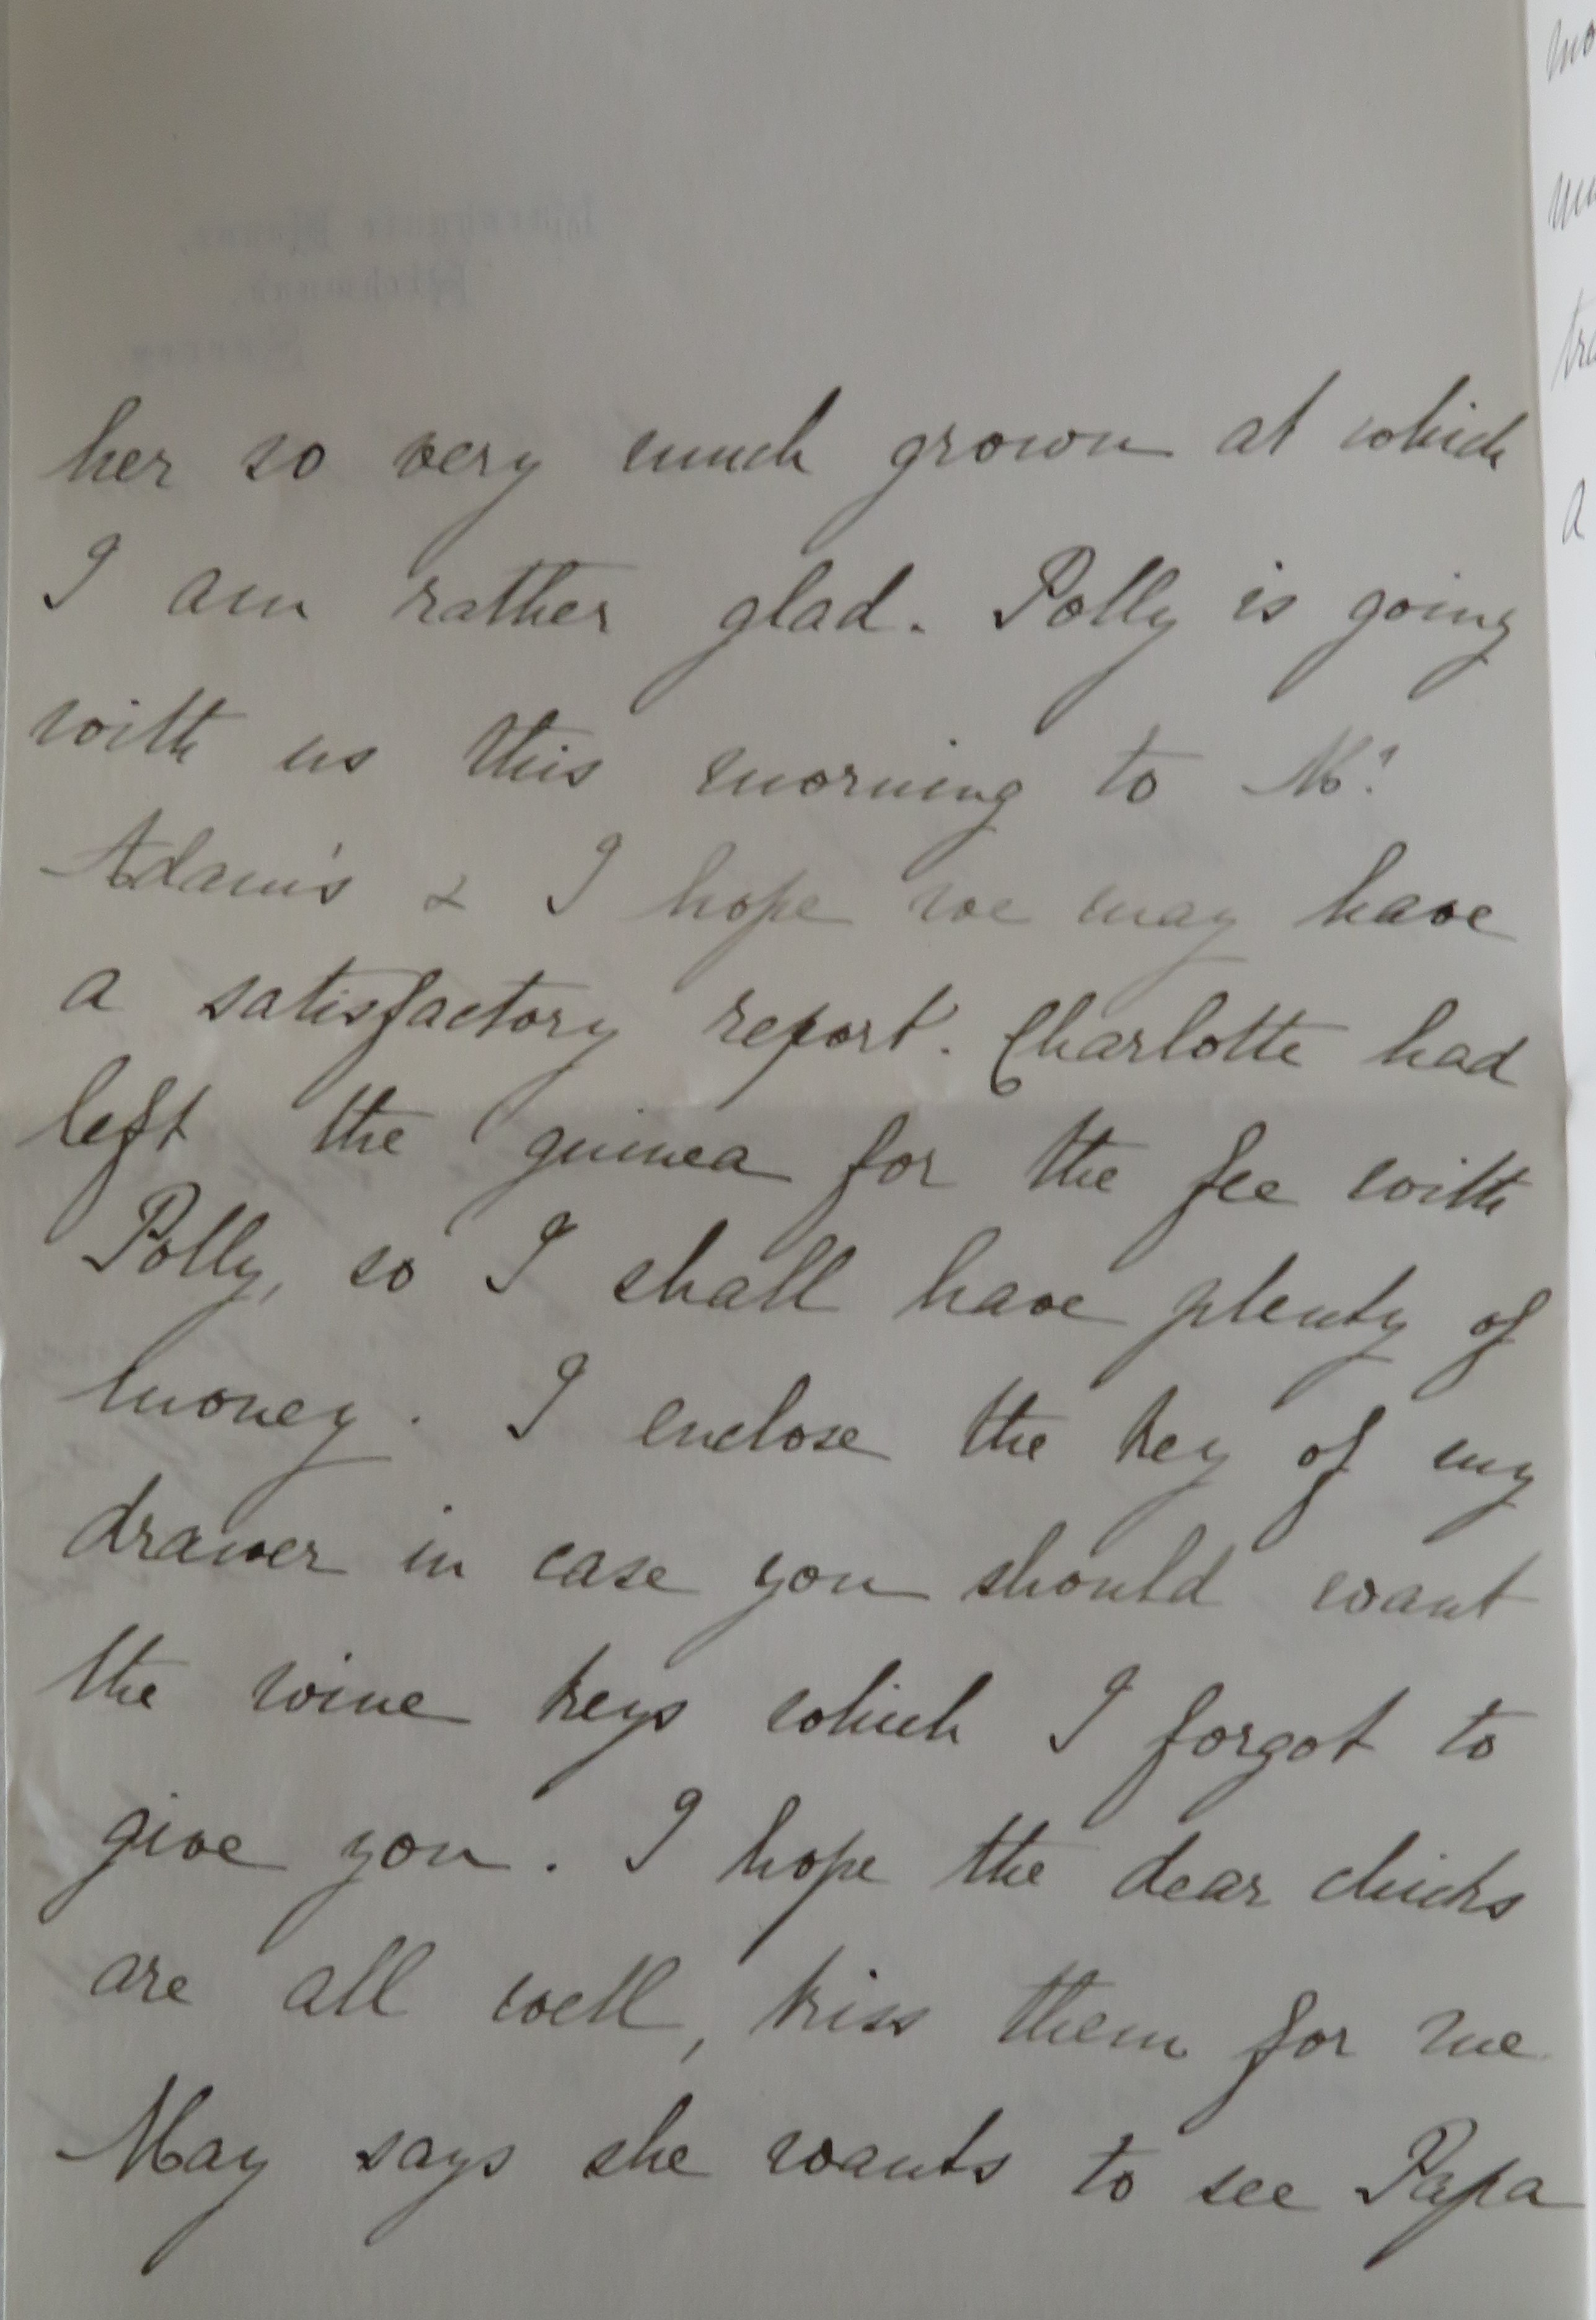 her so very much grown at which
I am rather glad. Polly is going
with us this morning to Mr.
Adam's & I hope we may have
a satisfactory report. Charlotte had
left the guinea for the fee with
Polly, so I shall have plenty of
money. I enclose the key of my
drawer in case you should want
the wine keys which I forgot to
give you. I hope the dear chicks
are all well, kiss them for me
May says she wants to see Papa